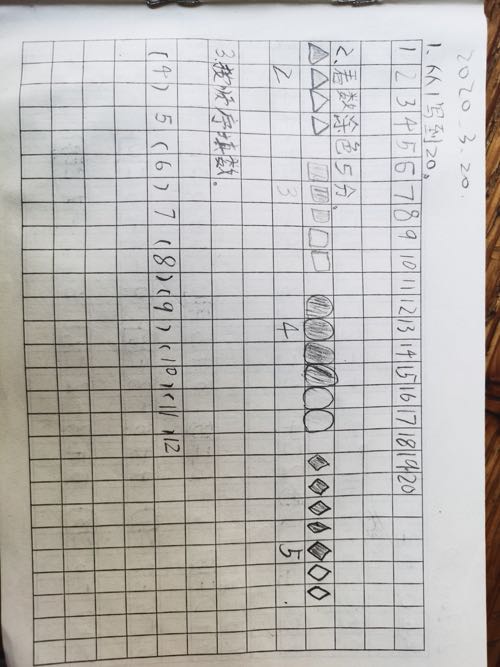 2020.3.20.
1.从1写到20。
1 2 3 4 5 6 7 8 9 10 11 12 13 14 15 16 17 18 19 20
2、看数涂色5分、
2 3 4 5
3.按顺序填数。
(4) 5 (6) 7 (8) (9) (10) (11) 12